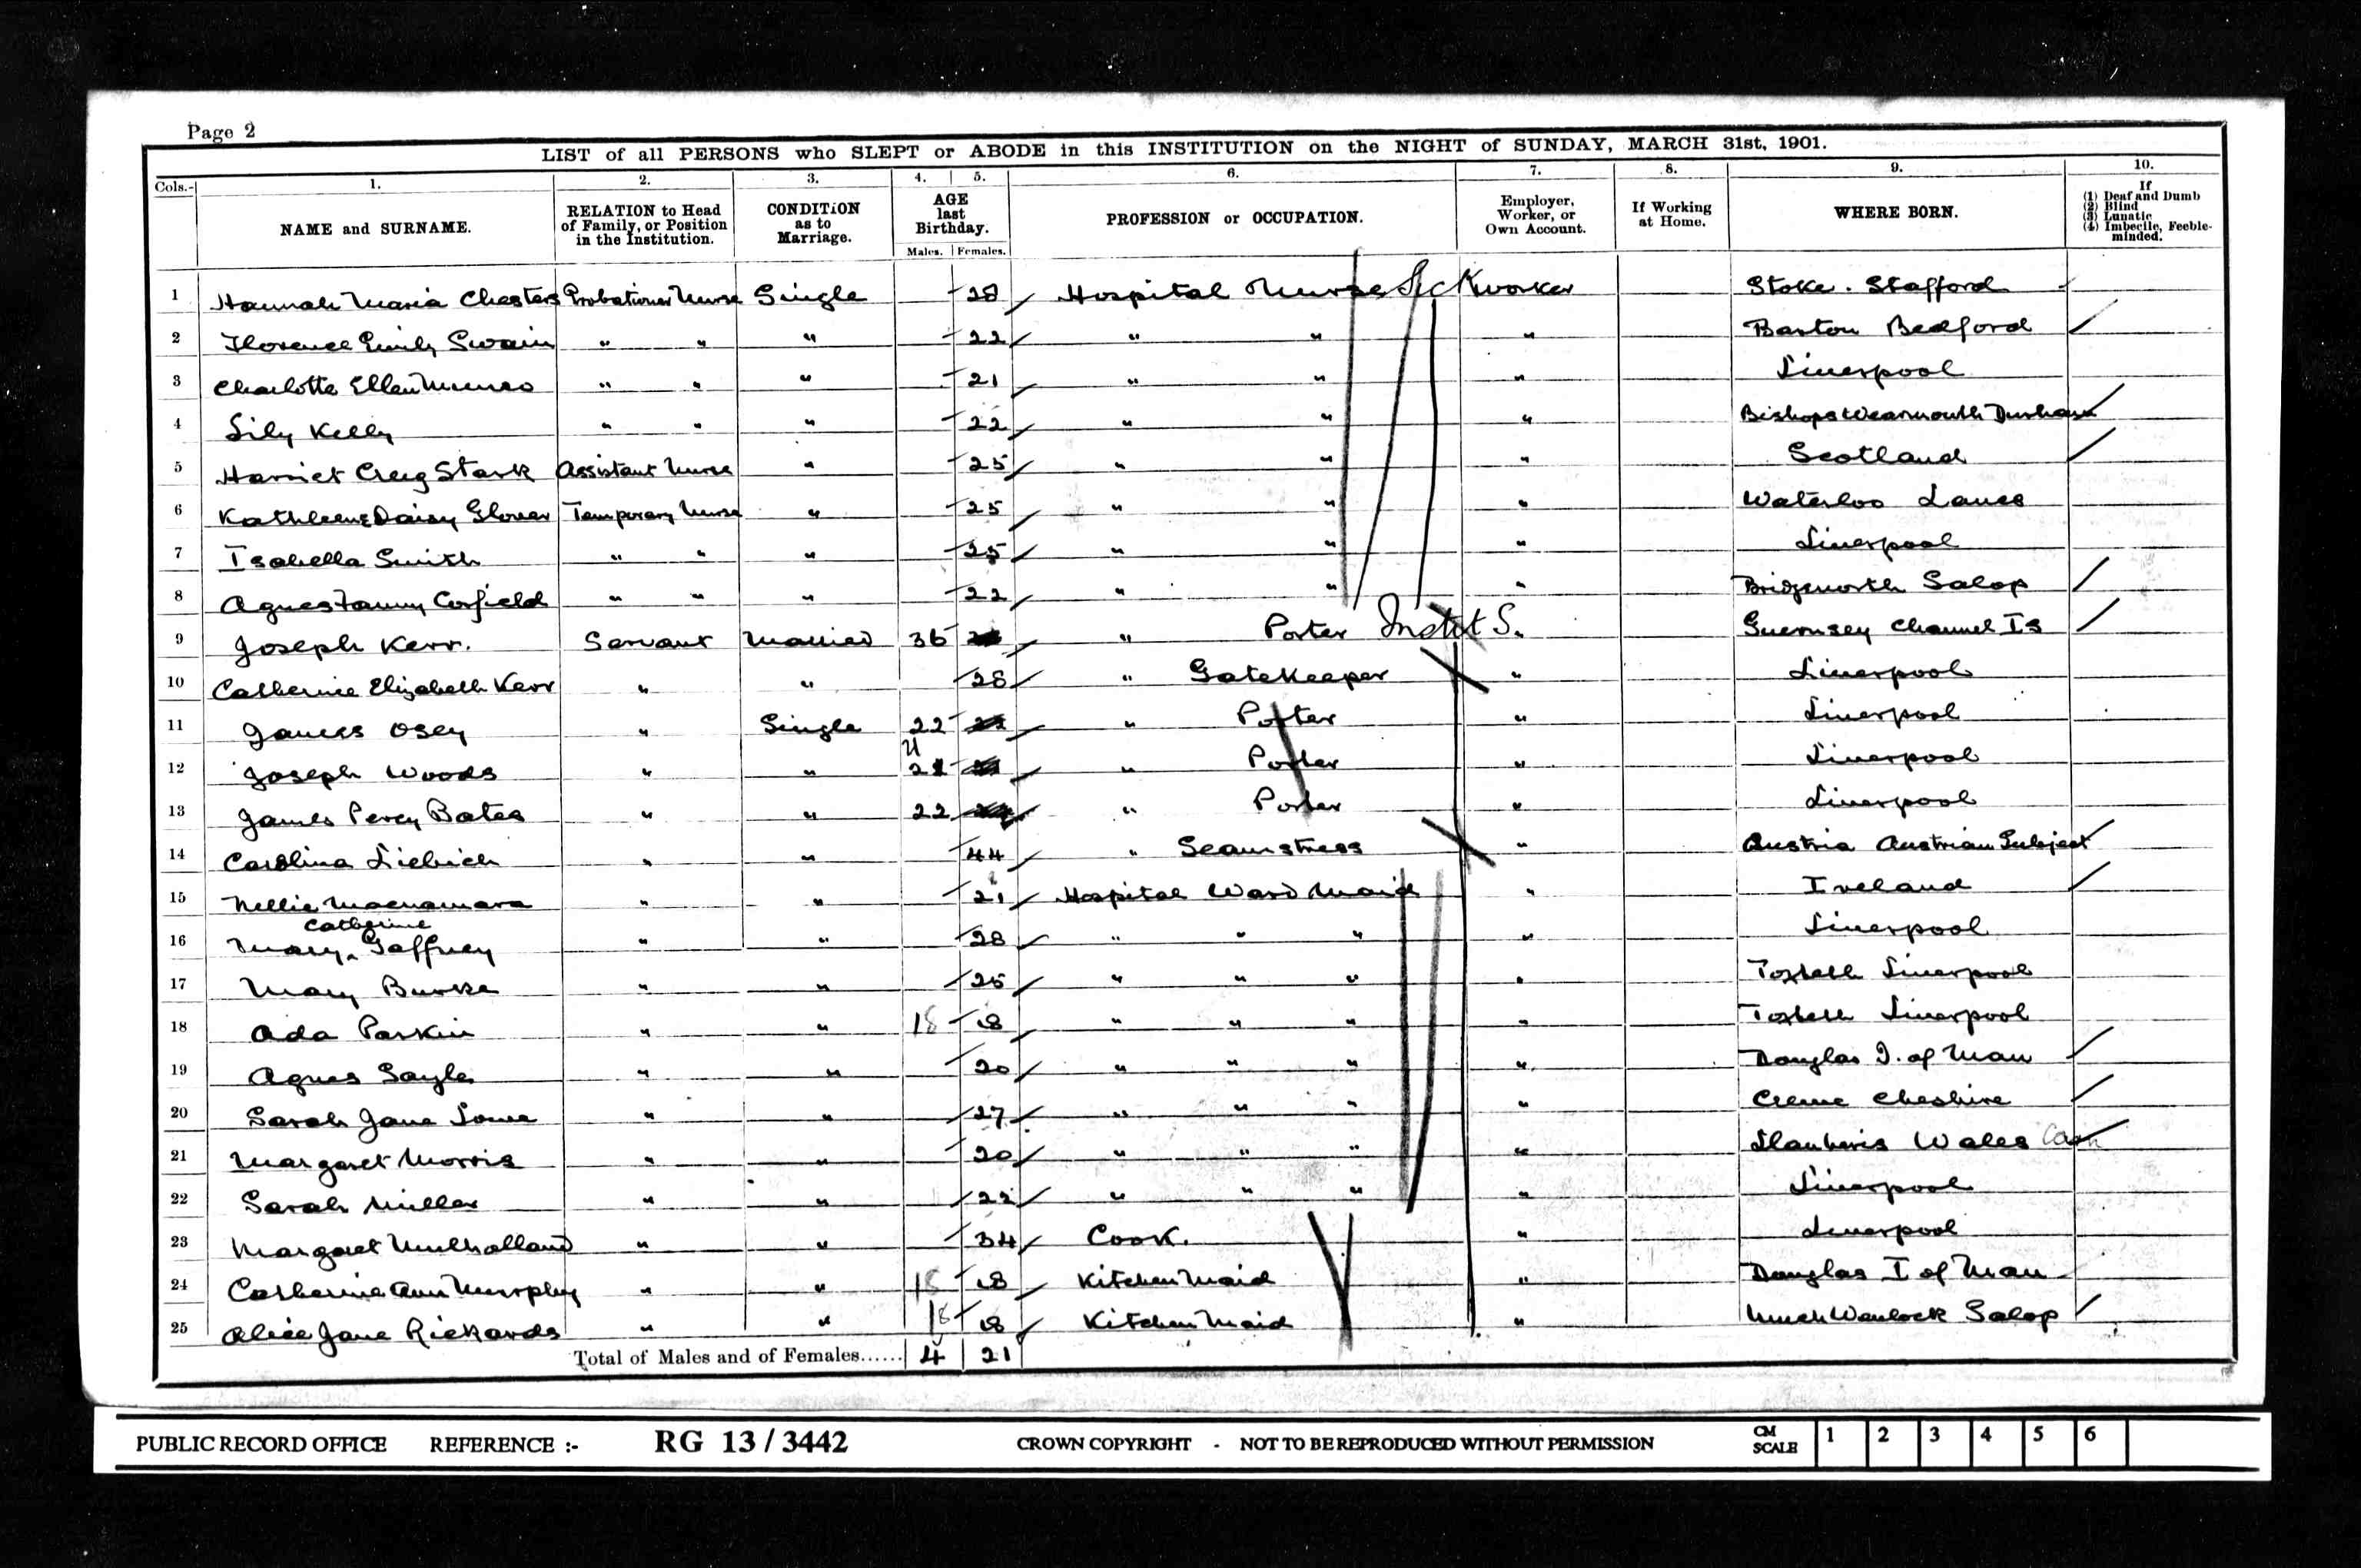 Page 2
LIST of all PERSONS who SLEPT or ABODE in this INSTITUTION on the NIGHT of SUNDAY, MARCH 31st, 1901.
Cols.- 1. 2. 3. 4. 5. 6. 7. 8. 9. 10.
NAME and SURNAME. RELATION to Head of Family, or Position in the Institution. CONDITION as to Marriage. AGE last Birthday. Males. Females. PROFESSION or OCCUPATION. Employer, Worker, or Own Account. If Working at Home. WHERE BORN. If (1) Deaf and Dumb (2) Blind (3) Lunatic (4) Imbecile, Feeble-minded.
1 Hannah Maria Chesters Probationer Nurse Single 28 Hospital Nurse Sick worker Stoke. Stafford
2 Florence Emily Swain " " " 22 " " " Barton Bedford
3 Charlotte Ellen Munro " " " 21 " " " Liverpool
4 Lily Kelly " " " 22 " " " Bishopswearmouth Durham
5 Harriet Creig Stark Assistant Nurse " 25 " " " Scotland
6 Kathleen Daisy Glover Temporary Nurse " 25 " " " Waterloo Lancs
7 Isabella Smith " " " 25 " " " Liverpool
8 Agnes Fanny Corfield " " " 22 " " " Bridgenorth Salop
9 Joseph Kerr. Servant Married 36 " Porter Instit S. Guernsey Channel Is
10 Catherine Elizabeth Kerr " " 28 " Gatekeeper " Liverpool
11 James Osey " Single 22 " Porter " Liverpool
12 Joseph Woods " " 21 " Porter " Liverpool
13 James Percy Bates " " 22 " Porter " Liverpool
14 Carolina Liebich " " 44 " Seamstress " Austria Austrian Subject
15 Nellie Macnamara " " 21 Hospital Ward Maid " Ireland
16 Mary Catherine Gaffney " " 28 " " " " Liverpool
17 Mary Burke " " 25 " " " " Toxteth Liverpool
18 Ada Parkin " " 18 18 " " " " Toxteth Liverpool
19 Agnes Sayle " " 20 " " " " Douglas I. of Man
20 Sarah Jane Lowe " " 27 " " " " Crewe Cheshire
21 Margaret Morris " " 20 " " " " Llanberis Wales Carn
22 Sarah Miller " " 22 " " " " Liverpool
23 Margaret Mulholland " " 34 Cook. " Liverpool
24 Catherine Ann Murphy " " 18 18 Kitchen Maid " Douglas I of Man
25 Alice Jane Rickards " " 18 18 Kitchen Maid " Much Wenlock Salop
Total of Males and of Females...... 4 21
PUBLIC RECORD OFFICE REFERENCE :- RG 13 / 3442 CROWN COPYRIGHT - NOT TO BE REPRODUCED WITHOUT PERMISSION CM SCALE 1 2 3 4 5 6